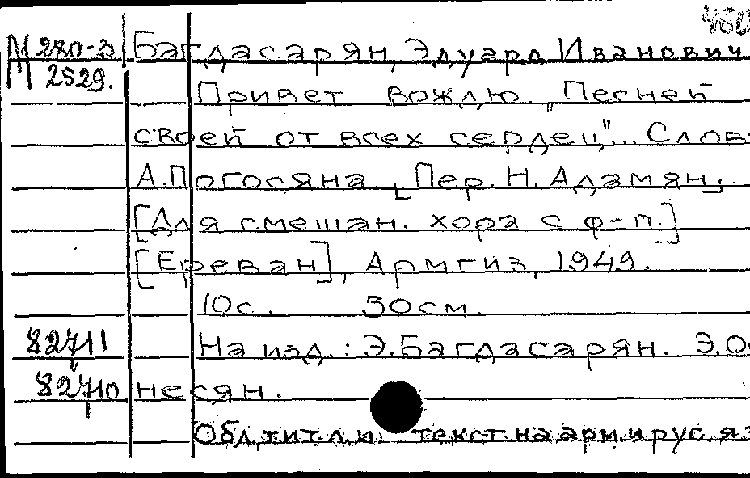 М 280-3 Багдасарян, Эдуард Иванович
М 2529.
Привет вождю. "Песней
своей от всех сердец"... Слов
А.Погосяна, [Пер. Н. Адамян].
[Для смешан. хора с ф-п.]
[Ереван], Армгиз, 1949.
10с. 30см.
82711 На изд.: Э.Багдасарян. Э.О
82710 несян.
Обл., тит.л. и текст на арм. и рус. яз